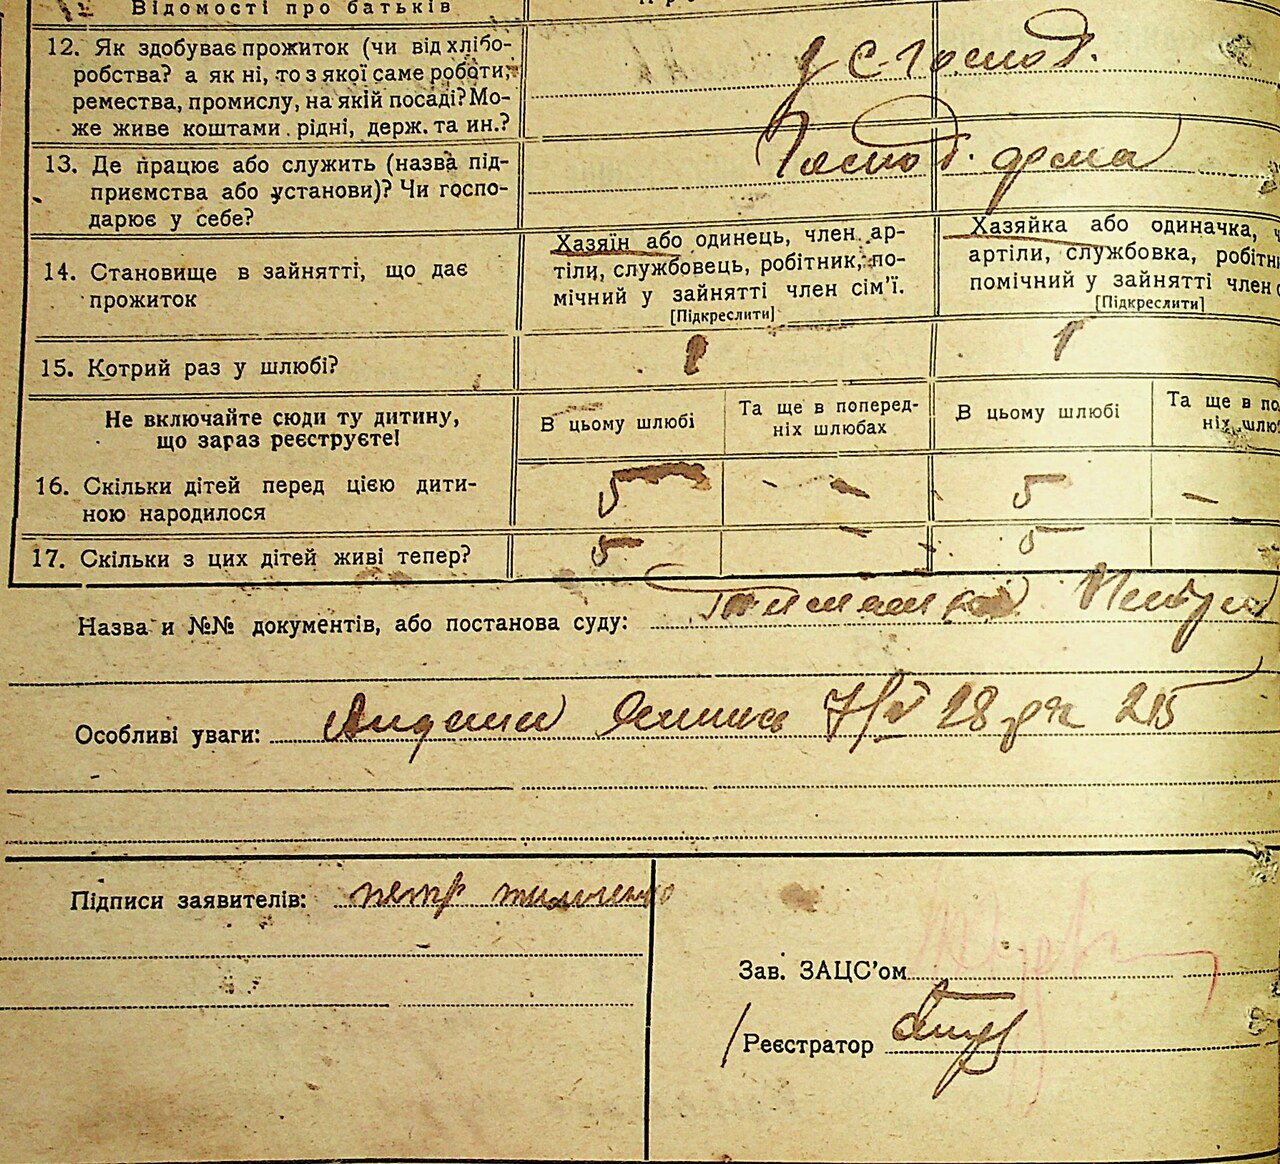 Відомості про батьків
12. Як здобуває прожиток (чи від хлібо-
робства? а як ні, то з якої саме роботи,
ремества, промислу, на якій посаді? Мо-
же живе коштами рідні, держ. та ин.?
с-господ.
13. Де працює або служить (назва під-
приємства або установи)? Чи госпо-
дарює у себе?
Господ. дома
14. Становище в зайнятті, що дає
прожиток
Хазяїн або одинець, член ар-
тілі, службовець, робітник, по-
мічний у зайнятті член сім'ї.
[Підкреслити]
Хазяйка або одиначка,
артіли, службовка,
помічний у зайнятті член
[Підкреслити]
15. Котрий раз у шлюбі?
1
1
Не включайте сюди ту дитину,
що зараз реєструєте!
В цьому шлюбі
Та ще в поперед-
ніх шлюбах
В цьому шлюбі
Та ще в
16. Скільки дітей перед цією дити-
ною народилося
5
-
-
5
-
17. Скільки з цих дітей живі тепер?
5
-
-
5
Назва и №№ документів, або постанова суду:
Особливі уваги: 28 215
Підписи заявителів: петр
Зав. ЗАЦС'ом
Реєстратор